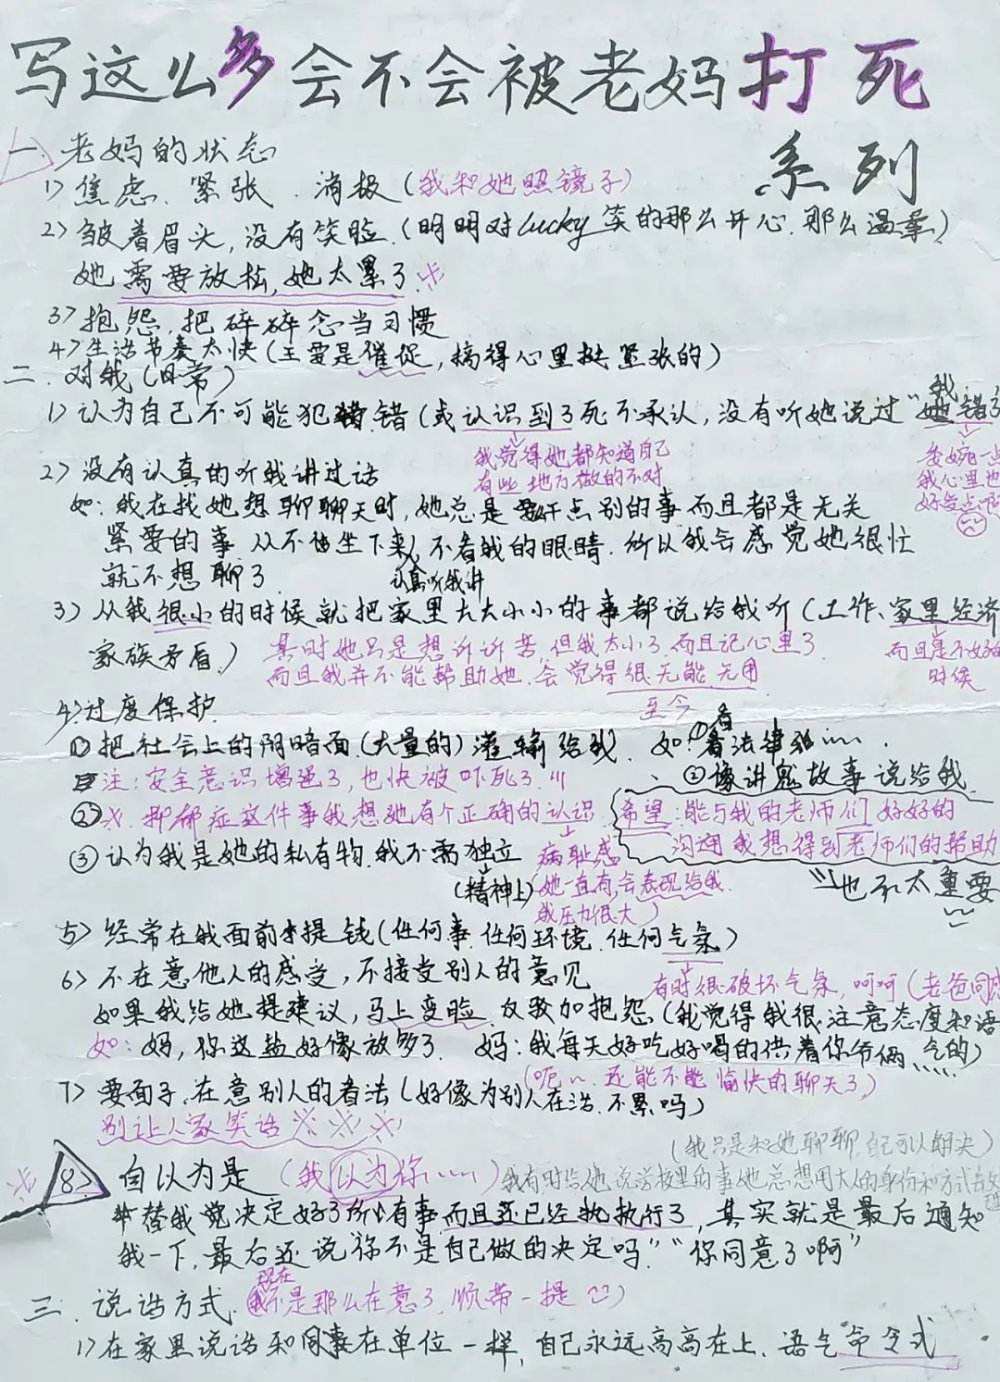 写这么多会不会被老妈打死
系列
一. 老妈的状态
1> 焦虑、紧张、消极(我和她照镜子)
2> 皱着眉头,没有笑脸.(明明对lucky笑的那么开心.那么温柔)
她需要放松,她太累了.
3> 抱怨,把碎碎念当习惯
4> 生活节奏太快(主要是催促,搞得心里挺紧张的)
二. 对我(日常)
1> 认为自己不可能犯错(或认识到了死不承认,没有听她说过“我错了
我觉得她都知道自己
有些地方做的不对
委婉一点
我心里也
好受点啊
2> 没有认真的听我讲过话
如:我在找她想聊聊天时,她总是要干点别的事而且都是无关
紧要的事.从不坐下来,不看我的眼睛.所以我会感觉她很忙
认真听我讲
就不想聊了
3> 从我很小的时候就把家里大大小小的事都说给我听(工作、家里经济
家族矛盾.)
其时她只是想诉诉苦,但我太小了.而且记心里了.
而且我并不能帮助她.会觉得很无能.无用
至今
而且是不好的
时候
4> 过度保护
①把社会上的阴暗面(大量的)灌输给我. 如:①看法律
②像讲鬼故事说给我
注:安全意识增强了,也快被吓死了.!!!
②※.抑郁症这件事我想她有个正确的认识
病耻感
(她一直有,会表现给我.
我压力很大)
希望:能与我的老师们好好的
沟通 我想得到老师们的帮助
也不太重要
③认为我是她的私有物.我不需独立
(精神上)
5> 经常在我面前提钱(任何事.任何环境.任何气氛)
有时很破坏气氛,呵呵(老爸同感
6> 不在意他人的感受,不接受别人的意见
如果我给她提建议,马上变脸 反驳加抱怨(我觉得我很注意态度和语
气的)
如:妈,你这盐好像放多了. 妈:我每天好吃好喝的供着你爷俩......
(呃~.还能不能愉快的聊天了)
7> 要面子,在意别人的看法(好像为别人在活.不累吗)
别让人家笑话 ※.※.※
(我只是和她聊聊.自己可以解决)
8> 自以为是 (我以为你....)我有时给她说学校里的事她总想用大人的身份和方式去
替我决定好了所有事而且还已经执行了,其实就是最后通知
我一下,最后还说“你不是自己做的决定吗”“你同意了啊”
三. 说话方式.(现在不是那么在意了.顺带一提)
1> 在家里说话和同事在单位一样,自己永远高高在上.语气命令式